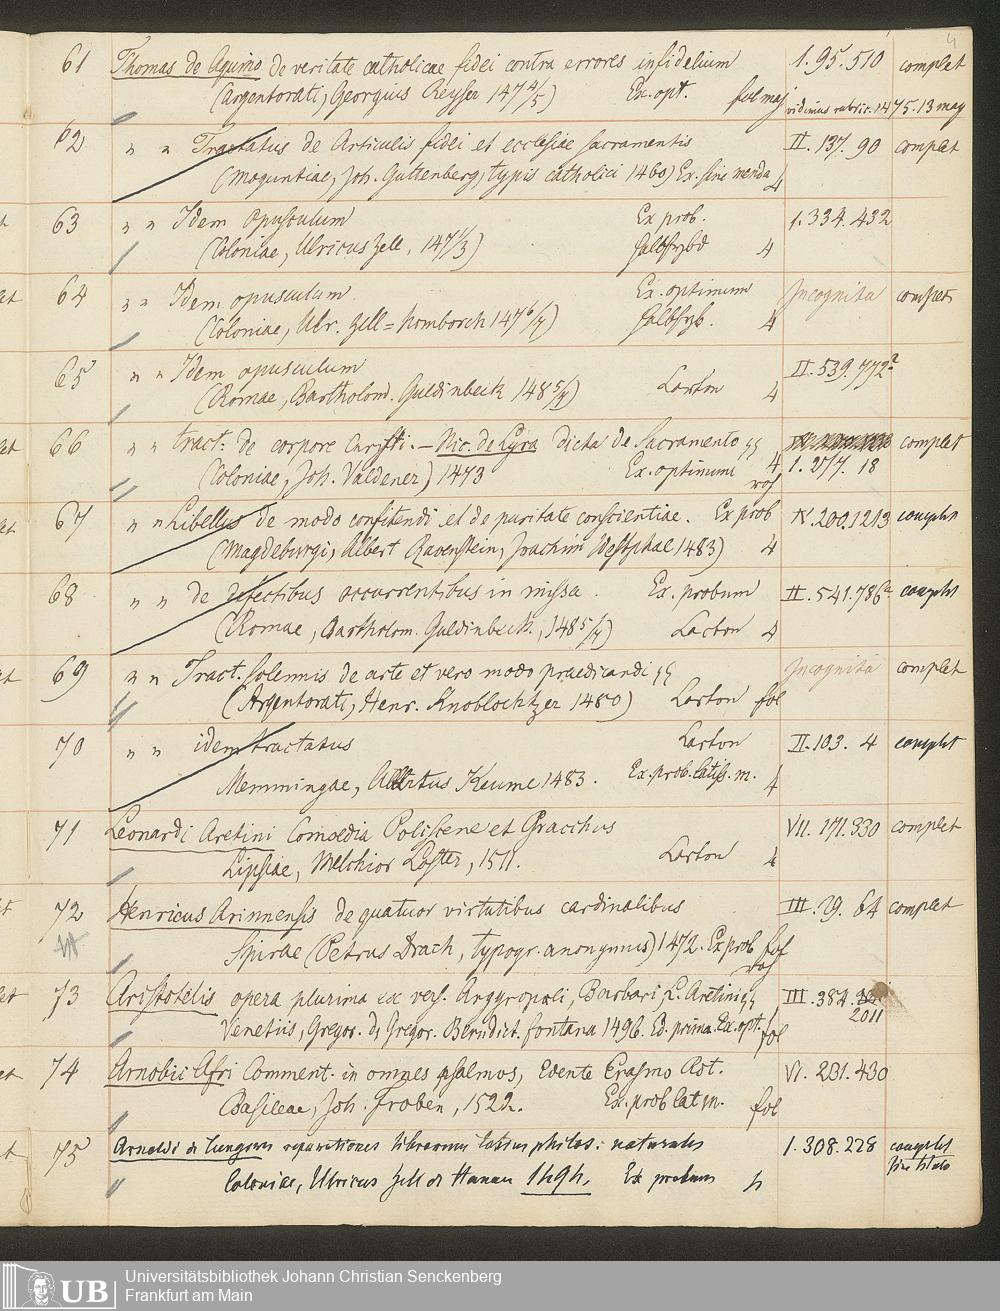 4
61 Thomas de Aquino de veritate catholicae fidei contra errores infidelium 1. 95. 510 complet
(Argentorati, Georgius Reyser 147 4/5) Ex. opt. fol maj vidimus rubric. 1475. 13 maj
62 " " Tractatus de Articulis fidei et ecclesiae sacramentis II. 137. 90 complet
(Moguntiae, Joh. Guttenberg, typis catholici 1460) Ex. sine menda 4
63 " " Idem opusculum Ex prob. 1. 334. 432
(Coloniae, Ulricus Zell, 147 1/3) 4
64 " " Idem opusculum Ex. optimum Incognita complet
(Coloniae, Ulr. Zell = Homborch 147 6/7) 4
65 " " Idem opusculum II. 539. 772a
(Romae, Bartholom. Guldinbeck 148 5/7) Carton 4
66 " " tract. de corpore Christi. — Nic. de Lyra dicta de Sacramento complet
(Coloniae, Joh. Valdener) 1473 Ex. optimum 4 1. 18
67 " " Libellus de modo confitendi et de puritate conscientiae. Ex prob IV. 200. 1213 complet
(Magdeburgi, Albert Ravenstein, Joachim Westphal 1483) 4
68 " " de defectibus occurrentibus in missa. Ex. probum II. 541. 786a complet
(Romae, Bartholom. Guldinbeck, 148 5/7) Carton 4
69 " " Tract. solennis de arte et vero modo praedicandi Incognita complet
(Argentorati, Henr. Knoblochtzer 1480) Carton fol
70 " " idem tractatus Carton II. 103. 4 complet
Memmingae, Albertus Keume 1483. Ex. prob. latiss. m. 4
71 Leonardi Aretini Comoedia Poliscene et Gracchus VII. 171. 330 complet
Lipsiae, Melchior Lotter, 1511. Carton 4
72 Henricus Ariminensis de quatuor virtutibus cardinalibus III. 29. 64 complet
Spirae (Petrus Drach, typogr. anonymus) 1472. Ex prob fol
73 Aristotelis opera plurima ex vers. Argyropoli, Barbari, L. Aretini III. 384.
2011
Venetiis, Gregor. de Gregor. Benedict. Fontana 1496. Ed. prima. Ex. opt. fol
74 Arnobii Afri Comment. in omnes psalmos, edente Erasmo Rot. VI. 231. 430
Basileae, Joh. Froben, 1522. Ex. prob lat m. fol
75 Arnoldi de Tungern reparationes librorum totius philos: naturalis 1. 308. 228 complet
sine titulo
Coloniae, Ulricus Zell de Hanau 1494. Ex probum 4
UB
Universitätsbibliothek Johann Christian Senckenberg
Frankfurt am Main